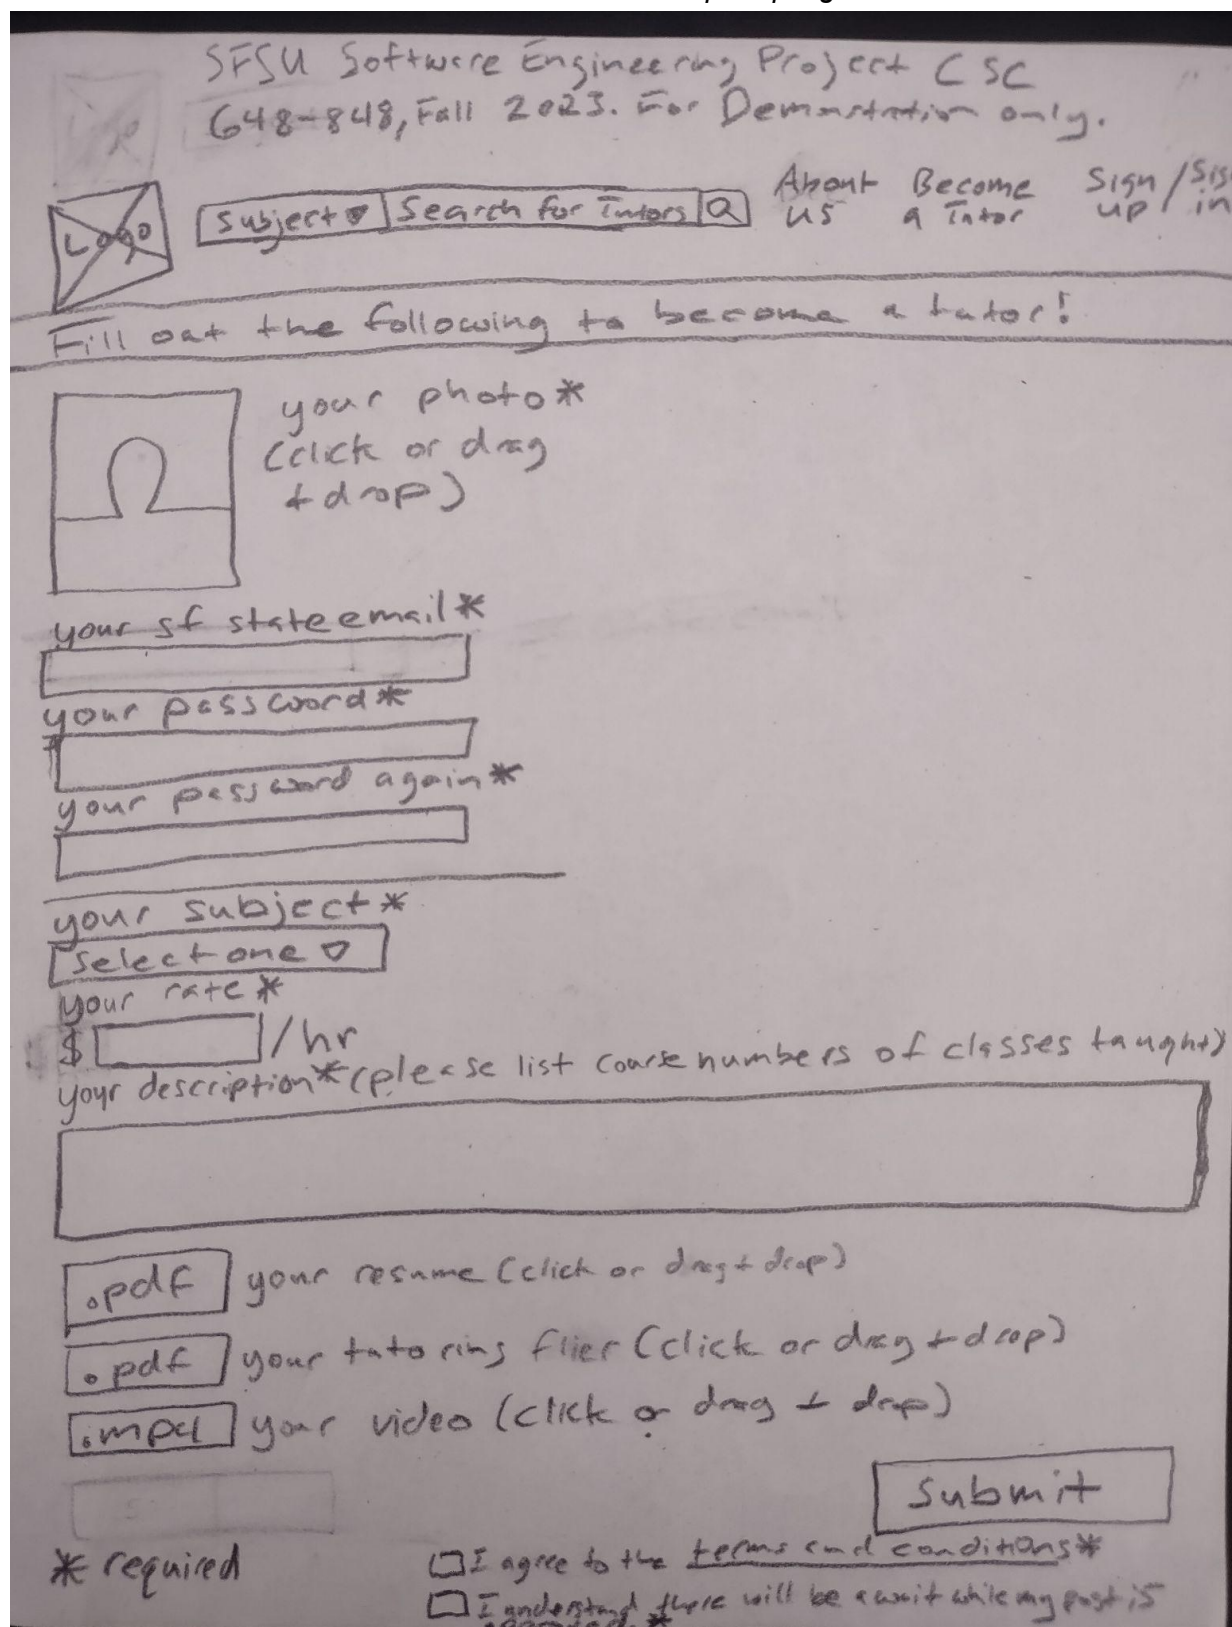 SFSU Software Engineering Project CSC
648-848, Fall 2023. For Demonstration only.
Logo
Subject Search for Tutors
About us
Become a Tutor
Sign up / Sign in
Fill out the following to become a tutor!
your photo*
(click or drag
+ drop)
your sf state email*
your password*
your password again*
your subject*
Select one
your rate*
$ /hr
your description* (please list course numbers of classes taught)
.pdf your resume (click or drag + drop)
.pdf your tutoring flier (click or drag + drop)
.mp4 your video (click or drag + drop)
Submit
* required
I agree to the terms and conditions*
I understand there will be a wait while my post is